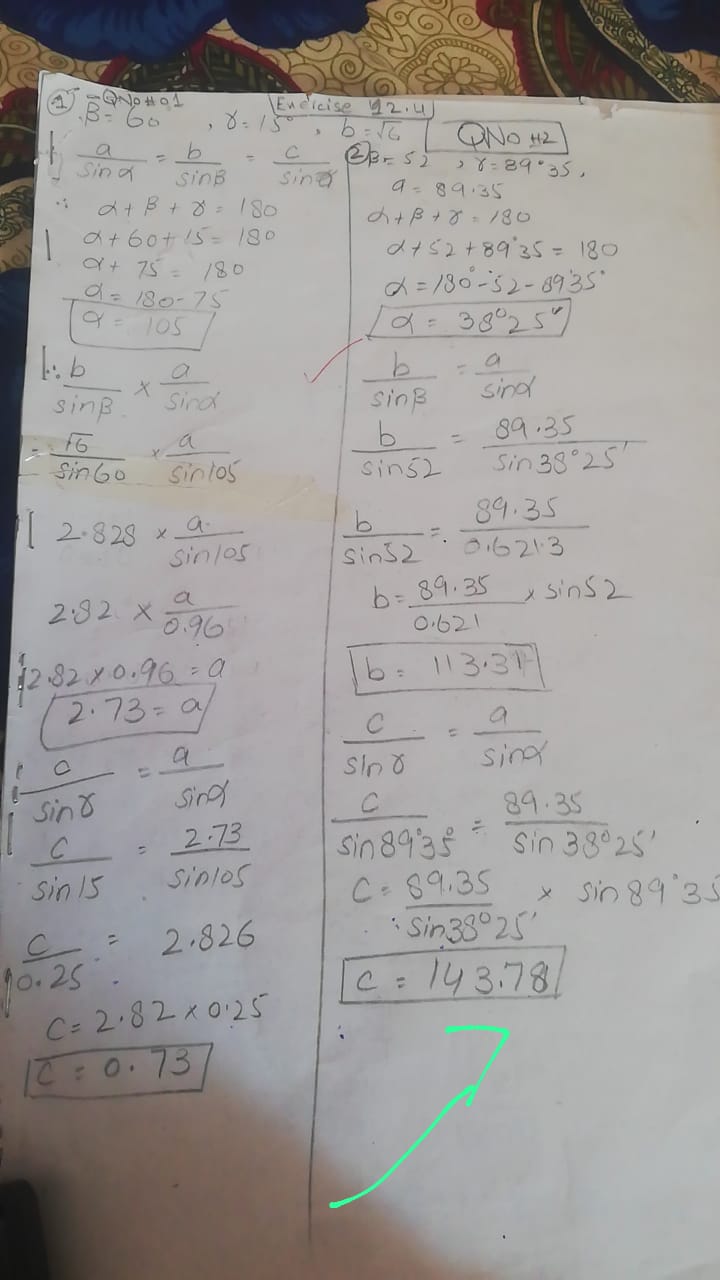 Exercise 12.4
① QNo#01
β=60 , γ=15° , b=√6
a/sinα = b/sinβ = c/sinα
∴ α+β+γ=180
α+60+15=180
α+75=180
α=180-75
α=105
∴ b/sinβ × a/sinα
= √6/sin60 × a/sin105
2.828 × a/sin105
2.82 × a/0.96
2.82×0.96=a
2.73=a
c/sinγ = a/sinα
c/sin15 = 2.73/sin105
c/0.25 = 2.826
C=2.82×0.25
C=0.73
QNo #2
② β=52 , γ=89°35,
a=89.35
α+β+γ=180
α+52+89°35=180
α=180°-52-89°35°
α=38°25'
b/sinβ = a/sinα
b/sin52 = 89.35/sin38°25'
b/sin52 = 89.35/0.6213
b=89.35/0.621 × sin52
b=113.31
c/sinγ = a/sinα
c/sin89°35° = 89.35/sin38°25'
C=89.35/sin38°25' × sin89°35
C=143.78